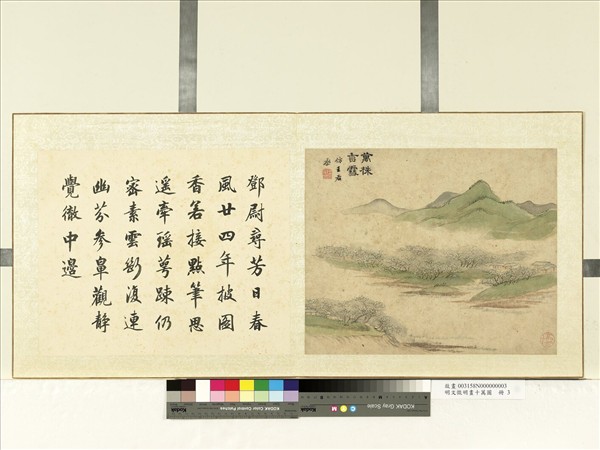 萬株
香雪
仿王若
水
鄧尉尋芳日春
風廿四年披圖
香若接點筆思
遥牽瑶萼踈仍
密素雲斷復連
幽芬參鼻觀静
覺徹中邊
故畫 003158N000000003
明文徵明畫十萬圖 冊 3
KODAK Gray Scale